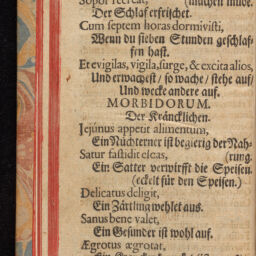 Sopor recreat, (muthen müde.
Der Schlaf erfrischet.
Cum septem horas dormivisti,
Wenn du sieben Stunden geschlaf-
fen hast.
Et evigilas, vigila, surge, & excita alios,
Und erwachest / so wache / stehe auf/
Und wecke andere auf.
MORBIDORUM.
Der Kräncklichen.
Jejúnus appetit alimentum,
Ein Nüchterner ist begierig der Nah-
Satur fastidit eleas, (rung.
Ein Satter verwirfft die Speisen.
(eckelt für den Speisen.)
Delicatus deligit,
Ein Zärtling wehlet aus.
Sanus bene valet,
Ein Gesunder ist wohl auf.
Ægrotus ægrotat,